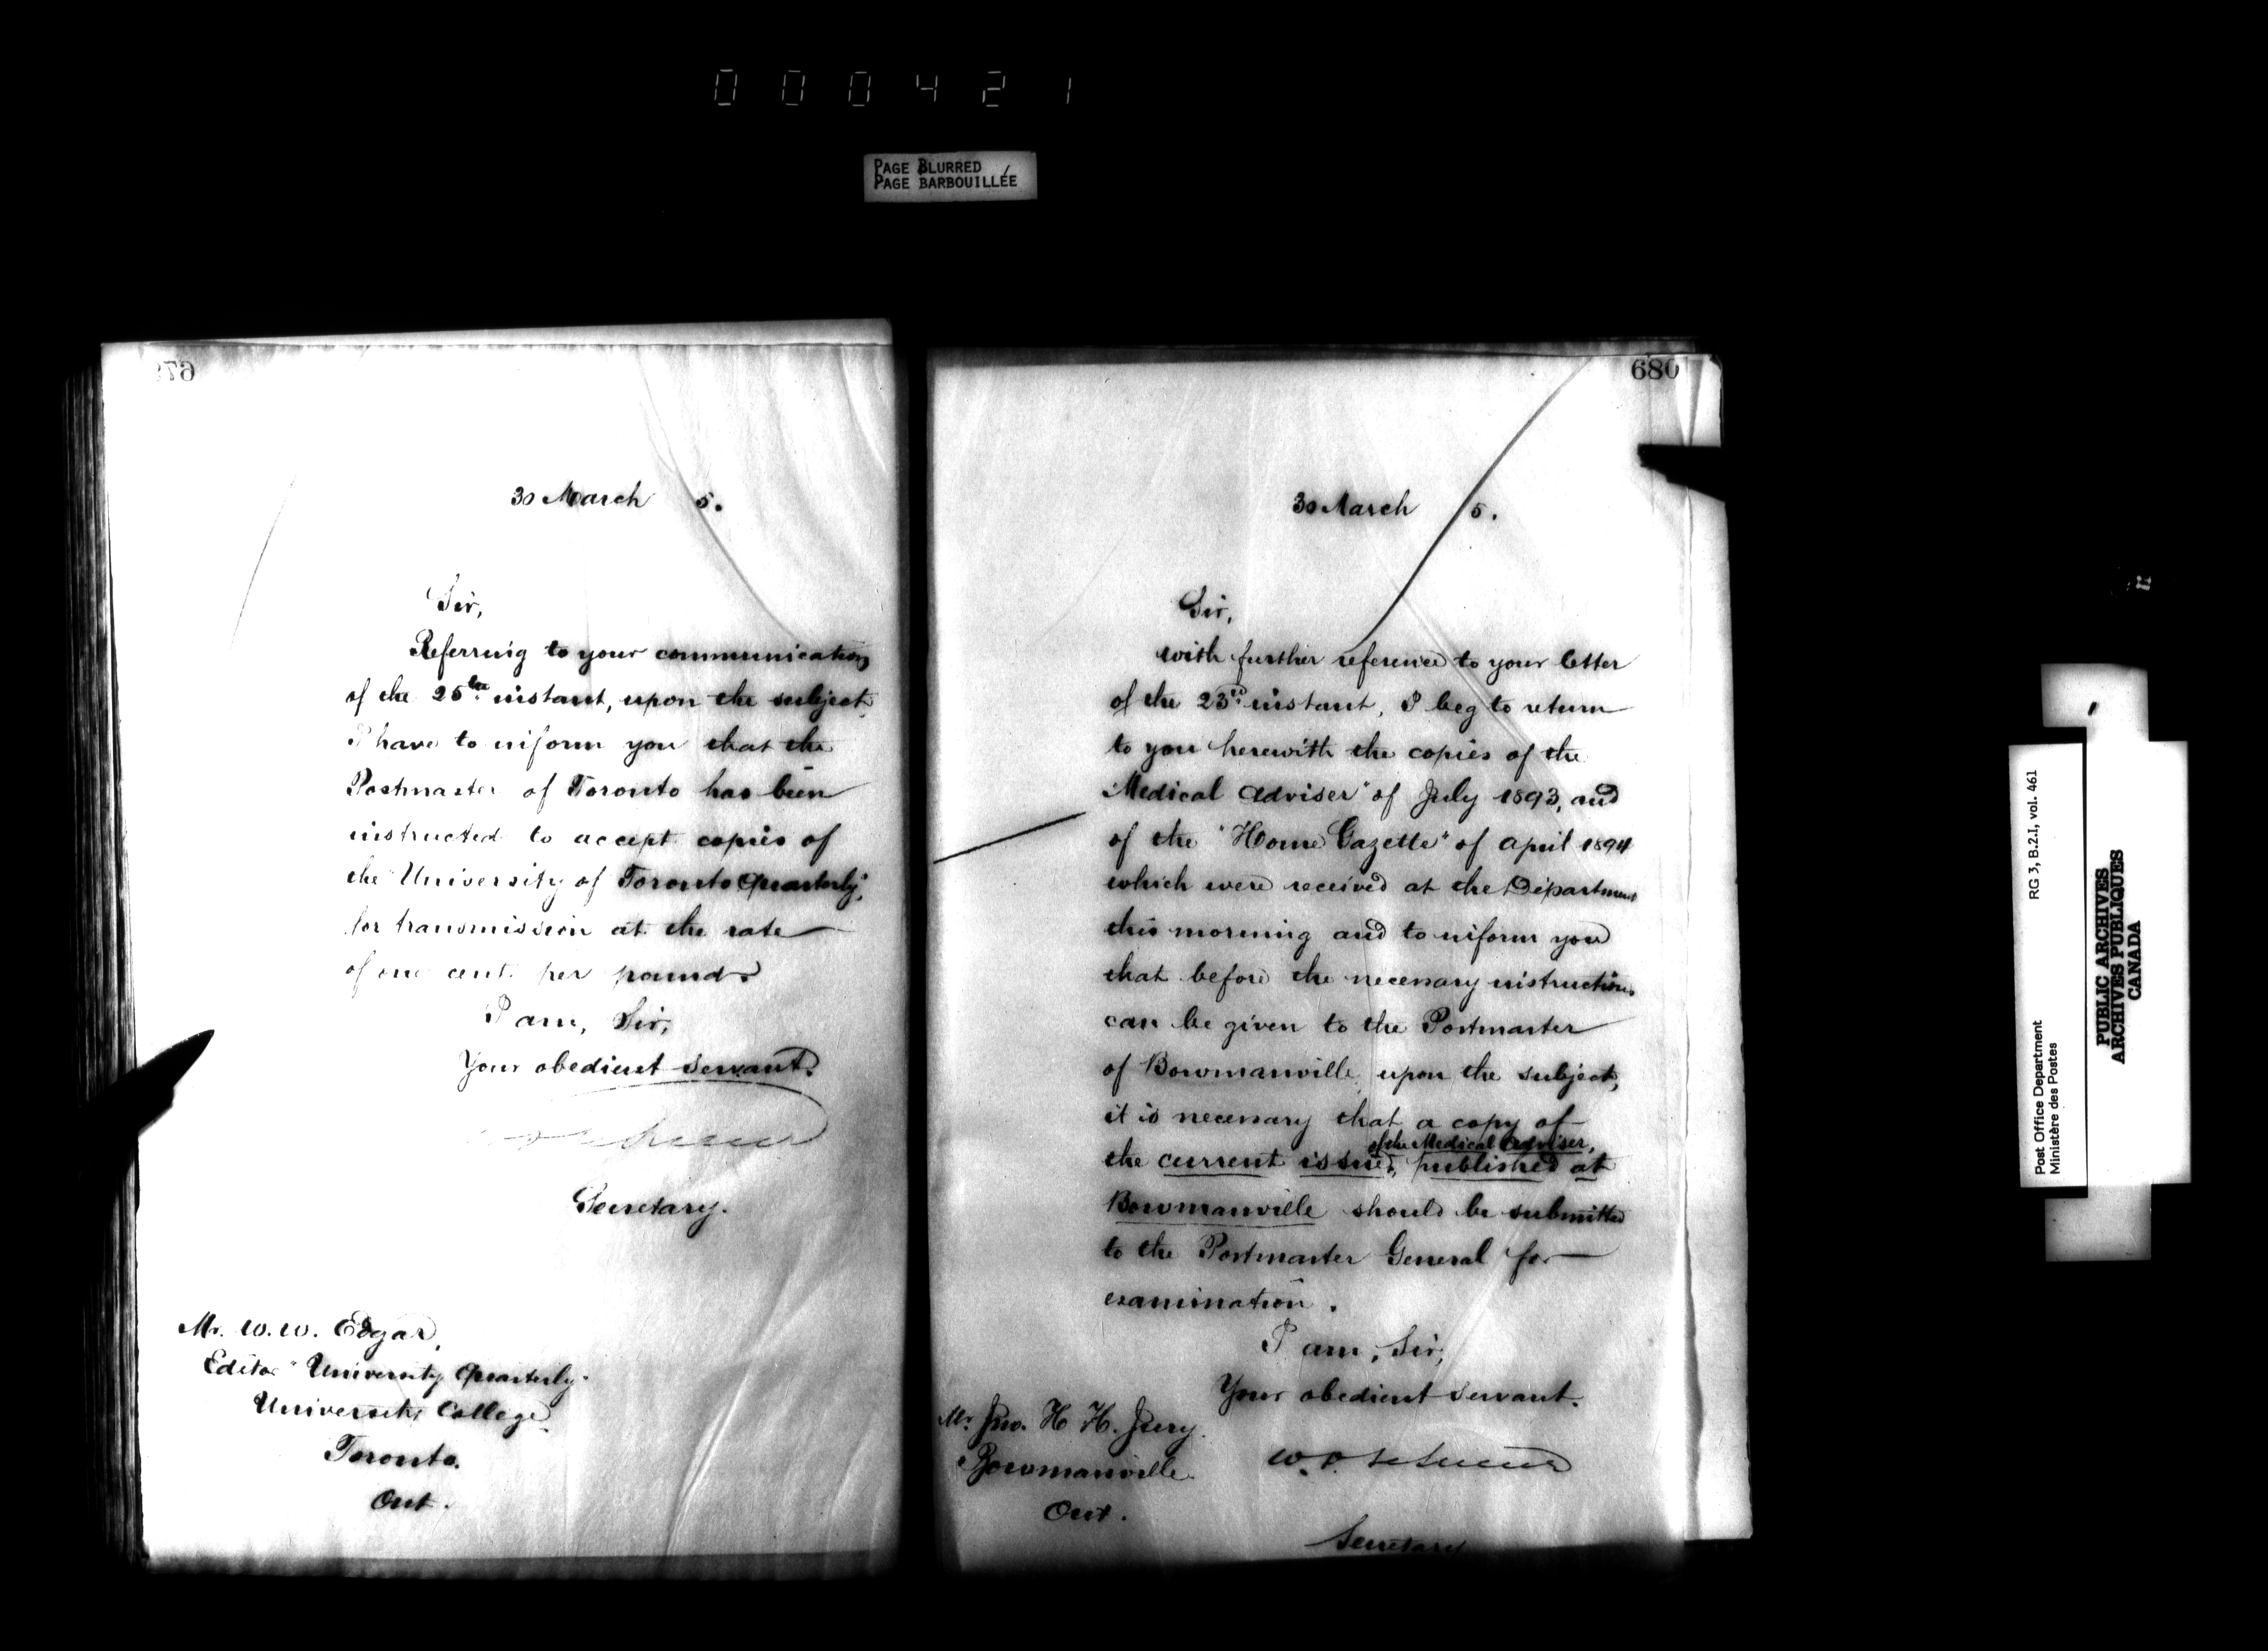 000421
PAGE BLURRED
PAGE BARBOUILLÉE
30 March 5.
Sir,
Referring to your communication
of the 25th instant, upon the subject
I have to inform you that the
Postmaster of Toronto has been
instructed to accept copies of
the "University of Toronto Quarterly",
for transmission at the rate
of one cent per pound.
I am, Sir,
Your obedient servant.
Secretary.
Mr. W. W. Edgar,
Editor "University Quarterly"
University College
Toronto.
Ont.
680
30 March 5.
Sir,
With further reference to your letter
of the 23rd instant, I beg to return
to you herewith the copies of the
"Medical Adviser" of July 1893, and
of the "Home Gazette" of April 1894
which were received at the Department
this morning and to inform you
that before the necessary instructions
can be given to the Postmaster
of Bowmanville upon the subject,
it is necessary that a copy of
of the Medical Adviser,
the current issue, published at
Bowmanville should be submitted
to the Postmaster General for
examination.
I am, Sir,
Your obedient servant.
Mr. Jno. H. H. Jury
Bowmanville
Ont.
Secretary
Post Office Department RG 3, B.2.I, vol. 461
Ministère des Postes
PUBLIC ARCHIVES
ARCHIVES PUBLIQUES
CANADA